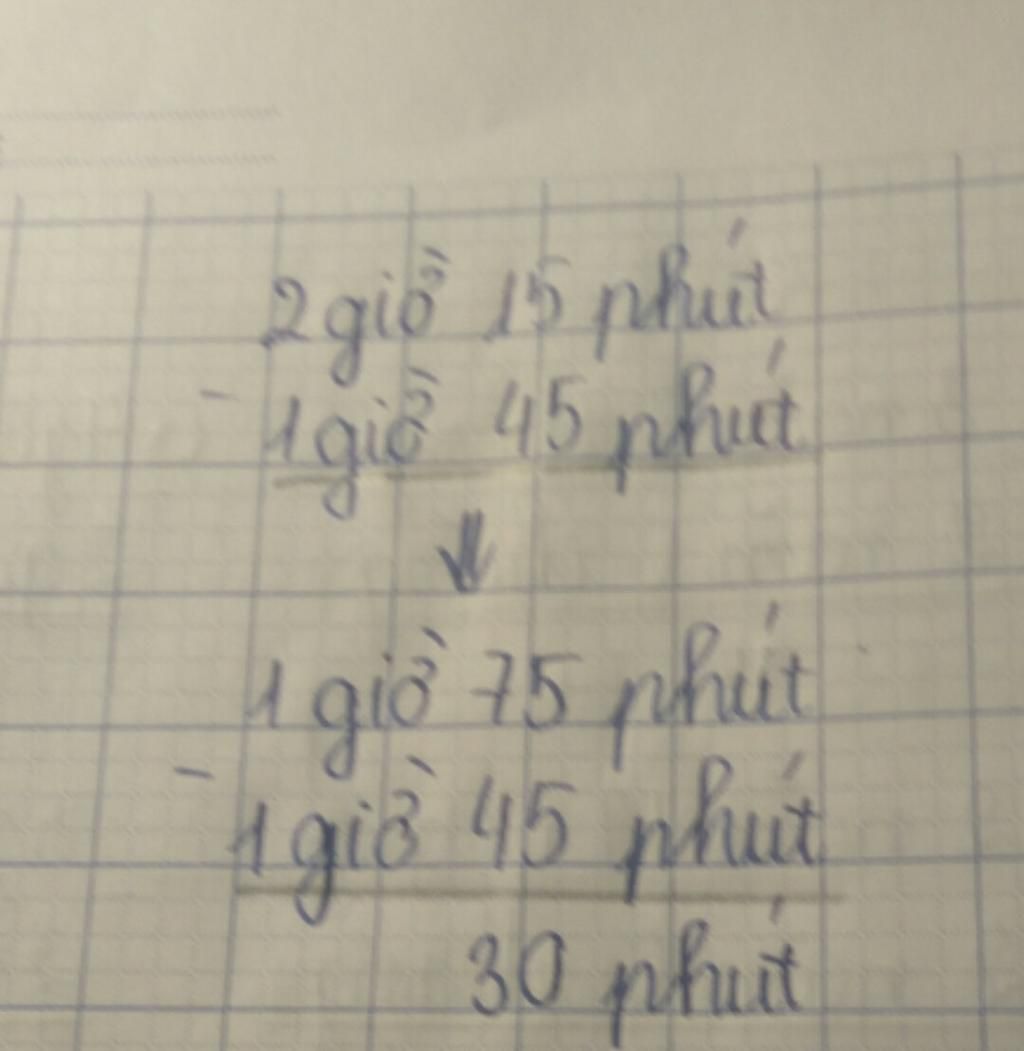 2 giờ 15 phút
- 1 giờ 45 phút
↓
1 giờ 75 phút
- 1 giờ 45 phút
30 phút